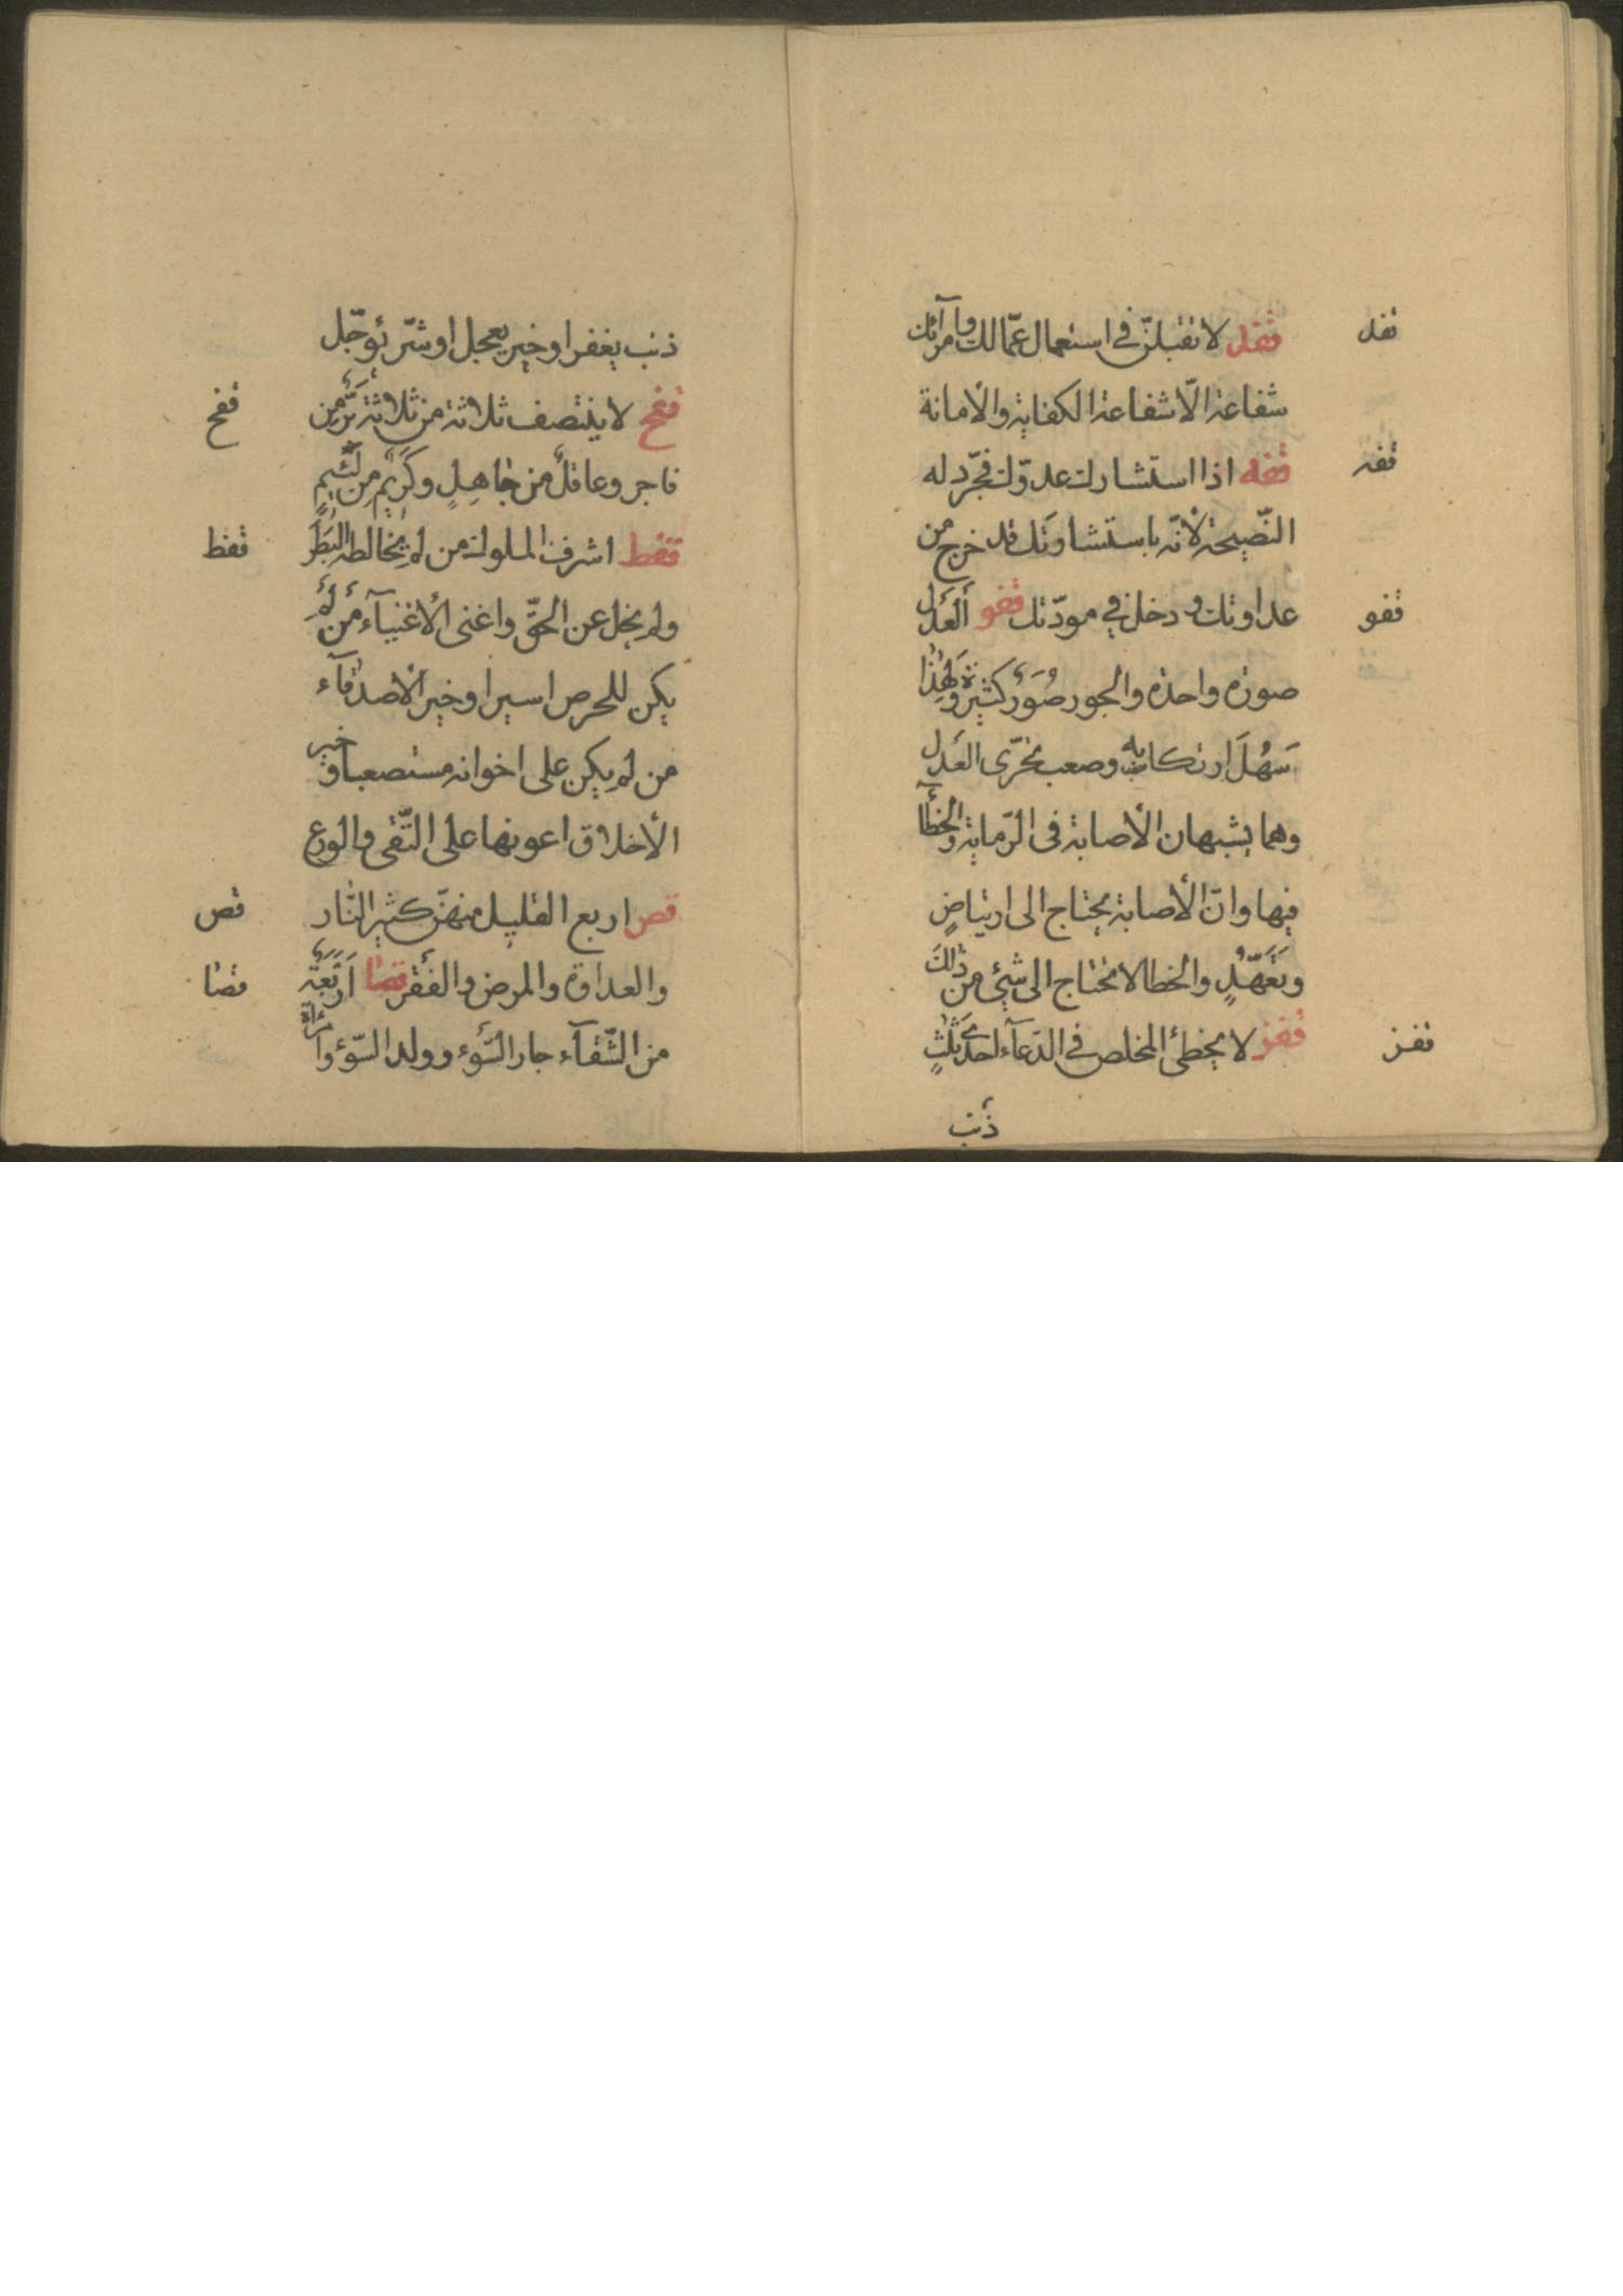 قفد لا تقبلنّ في استعمال عمّالك وامرآئك
قفد
شفاعة الّا شفاعة الكفاية والأمانة
قفه اذا استشارك عدوّك فجرّد له
قفه
النّصيحة لأنّه باستشارتك قد خرج من
عداوتك ودخل في مودّتك قفو العدل
قفو
صورة واحدة والجور صُوَر كثيرة ولهذا
سَهُلَ ارتكابه وصعب تحرّى العدل
وهما يشبهان الأصابة فى الرّماية والخطآ
فيها وانّ الأصابة يحتاج الى ارتياضٍ
وتَعَهّدٍ والخطا لا تحتاج الى شيئ من ذلك
قفز لا يخطئ المخلص في الدّعآء احدى ثلثٍ
قفز
ذنب
ذنب يغفر او خير يعجل او شرّ يؤجّل
قفح لا ينتصف ثلاثة من ثلاثة برّ من
قفح
فاجر وعاقل من جاهِلٍ وكريم من لئيمٍ
قفط اشرف الملوك من لم يخالطه البَطَر
قفط
ولم يخل عن الحقّ واغنى الأغنيآء من لم
يكن للحرص اسيرا وخير الأصدقآء
من لم يكن على اخوانه مستصعبا وخير
الأخلاق اعونها على التّقى والورع
قص اربع القليل منهنّ كثير النّار
قص
والعداوة والمرض والفقر قصا اربعة
قصا
من الشّقآء جار السّوء وولد السّوء وامرأة